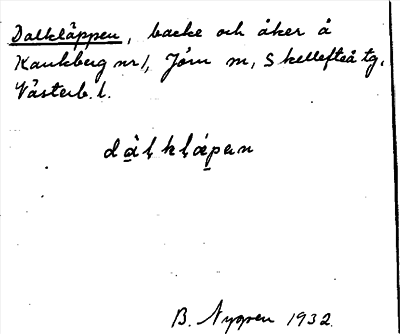 Dalkläppen, backe och åker å
Kankberg nr 1, Jörn sn, Skellefteå tg,
Västerb. l.
dàlklápen
B. Nygren 1932.